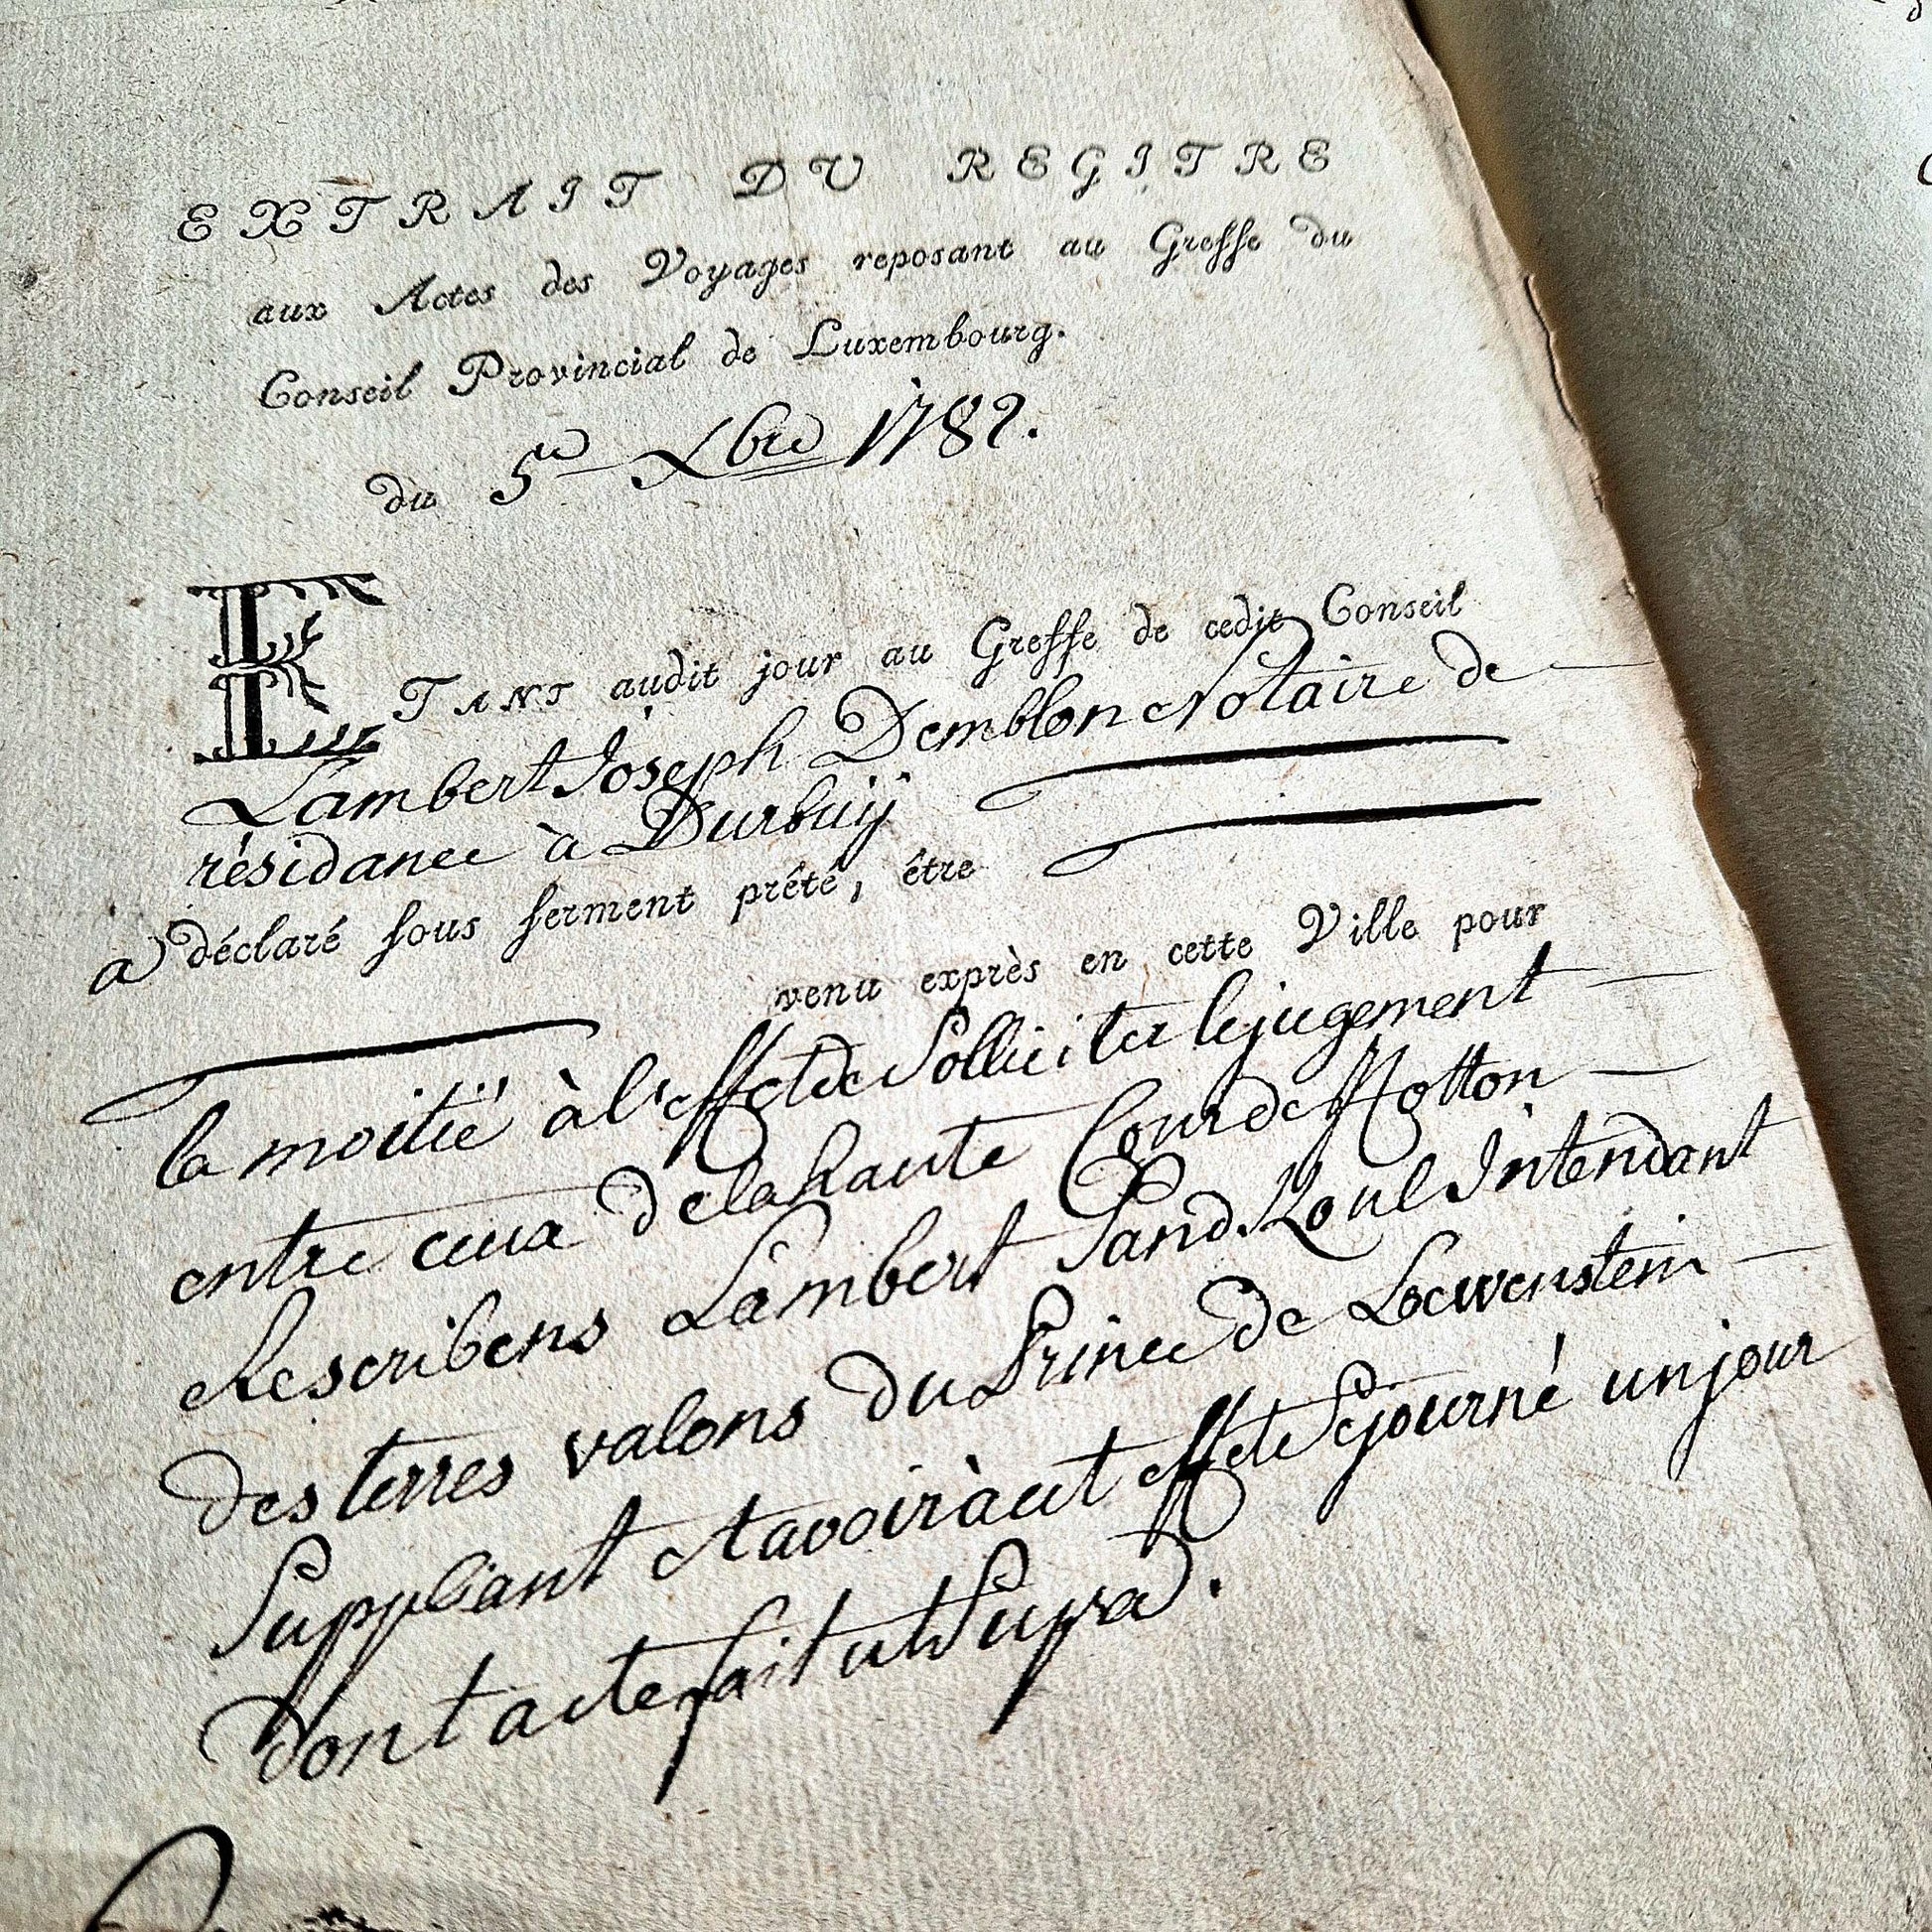 EXTRAIT DU REGITRE
aux Actes des Voyages reposant au Greffe du
Conseil Provincial de Luxembourg.
du 5e Xbre 1782.
ETANT audit jour au Greffe de cedit Conseil
Lambert Joseph Demblon Notaire de
résidance à Durbuÿ
a déclaré sous serment prêté, être
venu exprès en cette Ville pour
la moitié à l'effet de Solliciter le jugement
entre ceux de la haute Cour de Hotton
Rescribens Lambert Intendant
des terres valons du Prince de Loewenstein
Suppliant et avoir à cet effet Sejourné un jour
dont acte fait ut Supra.